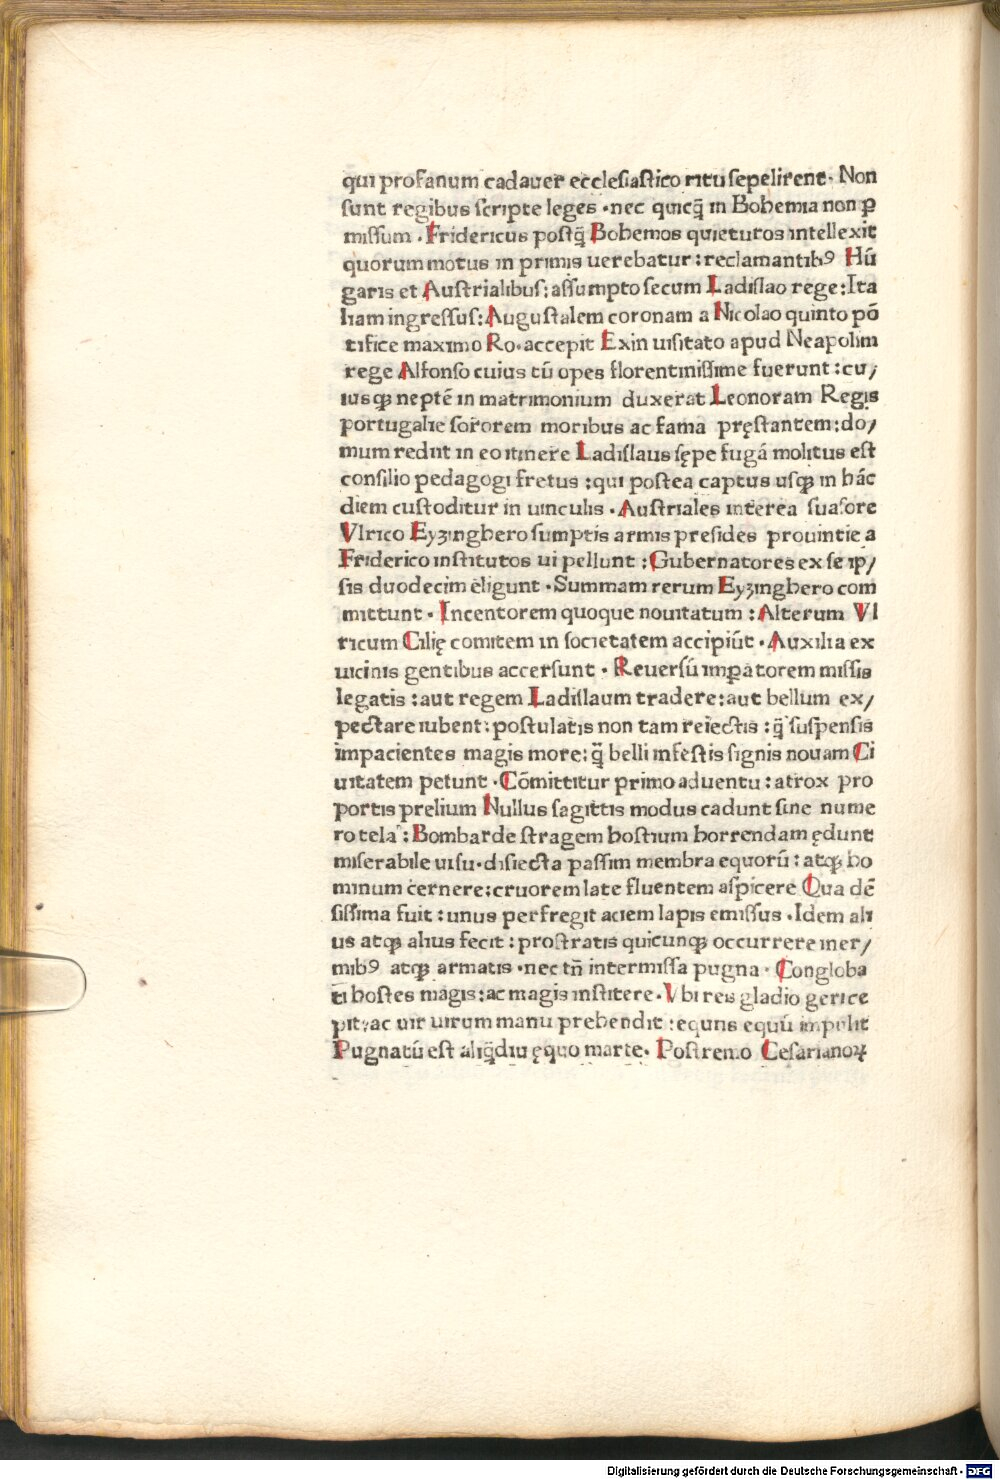 qui profanum cadauer ecclesiastico ritu sepelirent· Non
sunt regibus scripte leges ·nec quicq̄ in Bohemia non ꝑ
missum · Fridericus postq̄ Bohemos quieturos intellexit
quorum motus in primis uerebatur: reclamantibꝰ Hū
garis et Australibus: assumpto secum Ladislao rege: Ita
liam ingressus: Augustalem coronam a Nicolao quinto pō
tifice maximo Ro· accepit Exin uisitato apud Neapolim
rege Alfonso cuius tū opes florentinissime fuerunt: cu/
iusqꝫ neptē in matrimonium duxerat Leonoram Regis
portugalie sororem moribus ac fama pręstantem: do/
mum rediit in eo itinere Ladislaus sępe fugā molitus est
consilio pedagogi fretus: qui postea captus usqꝫ in hāc
diem custoditur in uinculis · Australes interea suasore
Vlrico Eyzinghero sumptis armis presides prouintie a
Friderico institutos ui pellunt: Gubernatores ex se ip/
sis duodecim eligunt · Summam rerum Eyzinghero com
mittunt · Incentorem quoque nouitatum: Alterum Vl
ricum Cilię comitem in societatem accipiūt · Auxilia ex
uicinis gentibus accersunt · Reuersū imꝑatorem missis
legatis: aut regem Ladislaum tradere: aut bellum ex/
pectare iubent: postulatis non tam reiectis: q̄ suspensis
impacientes magis more: q̄ belli infestis signis nouam Ci
uitatem petunt · Cōmittitur primo aduentu: atrox pro
portis prelium Nullus sagittis modus cadunt sine nume
ro tela: Bombarde stragem hostium horrendam ędunt
miserabile uisu· disiecta passim membra equorū: atqꝫ ho
minum cernere: cruorem late fluentem aspicere Qua dē
sissima fuit: unus perfregit aciem lapis emissus · Idem ali
us atqꝫ alius fecit: prostratis quicunqꝫ occurrere iner/
mibꝰ atqꝫ armatis ·nec tn̄ intermissa pugna · Congloba
ti hostes magis: ac magis institere· Vbi res gladio geri ce
pit: ac uir uirum manu prehendit: equus equū impulit
Pugnatū est aliq̄diu ęquo marte· Postremo Cesarianoꝝ
Digitalisierung gefördert durch die Deutsche Forschungsgemeinschaft - DFG